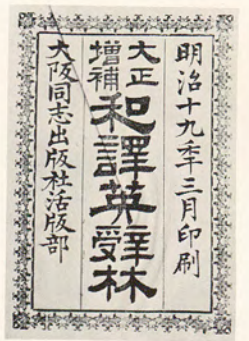 明治十九秊三月印刷
大正
增補
和譯英辤林
大阪同志出版社活版部